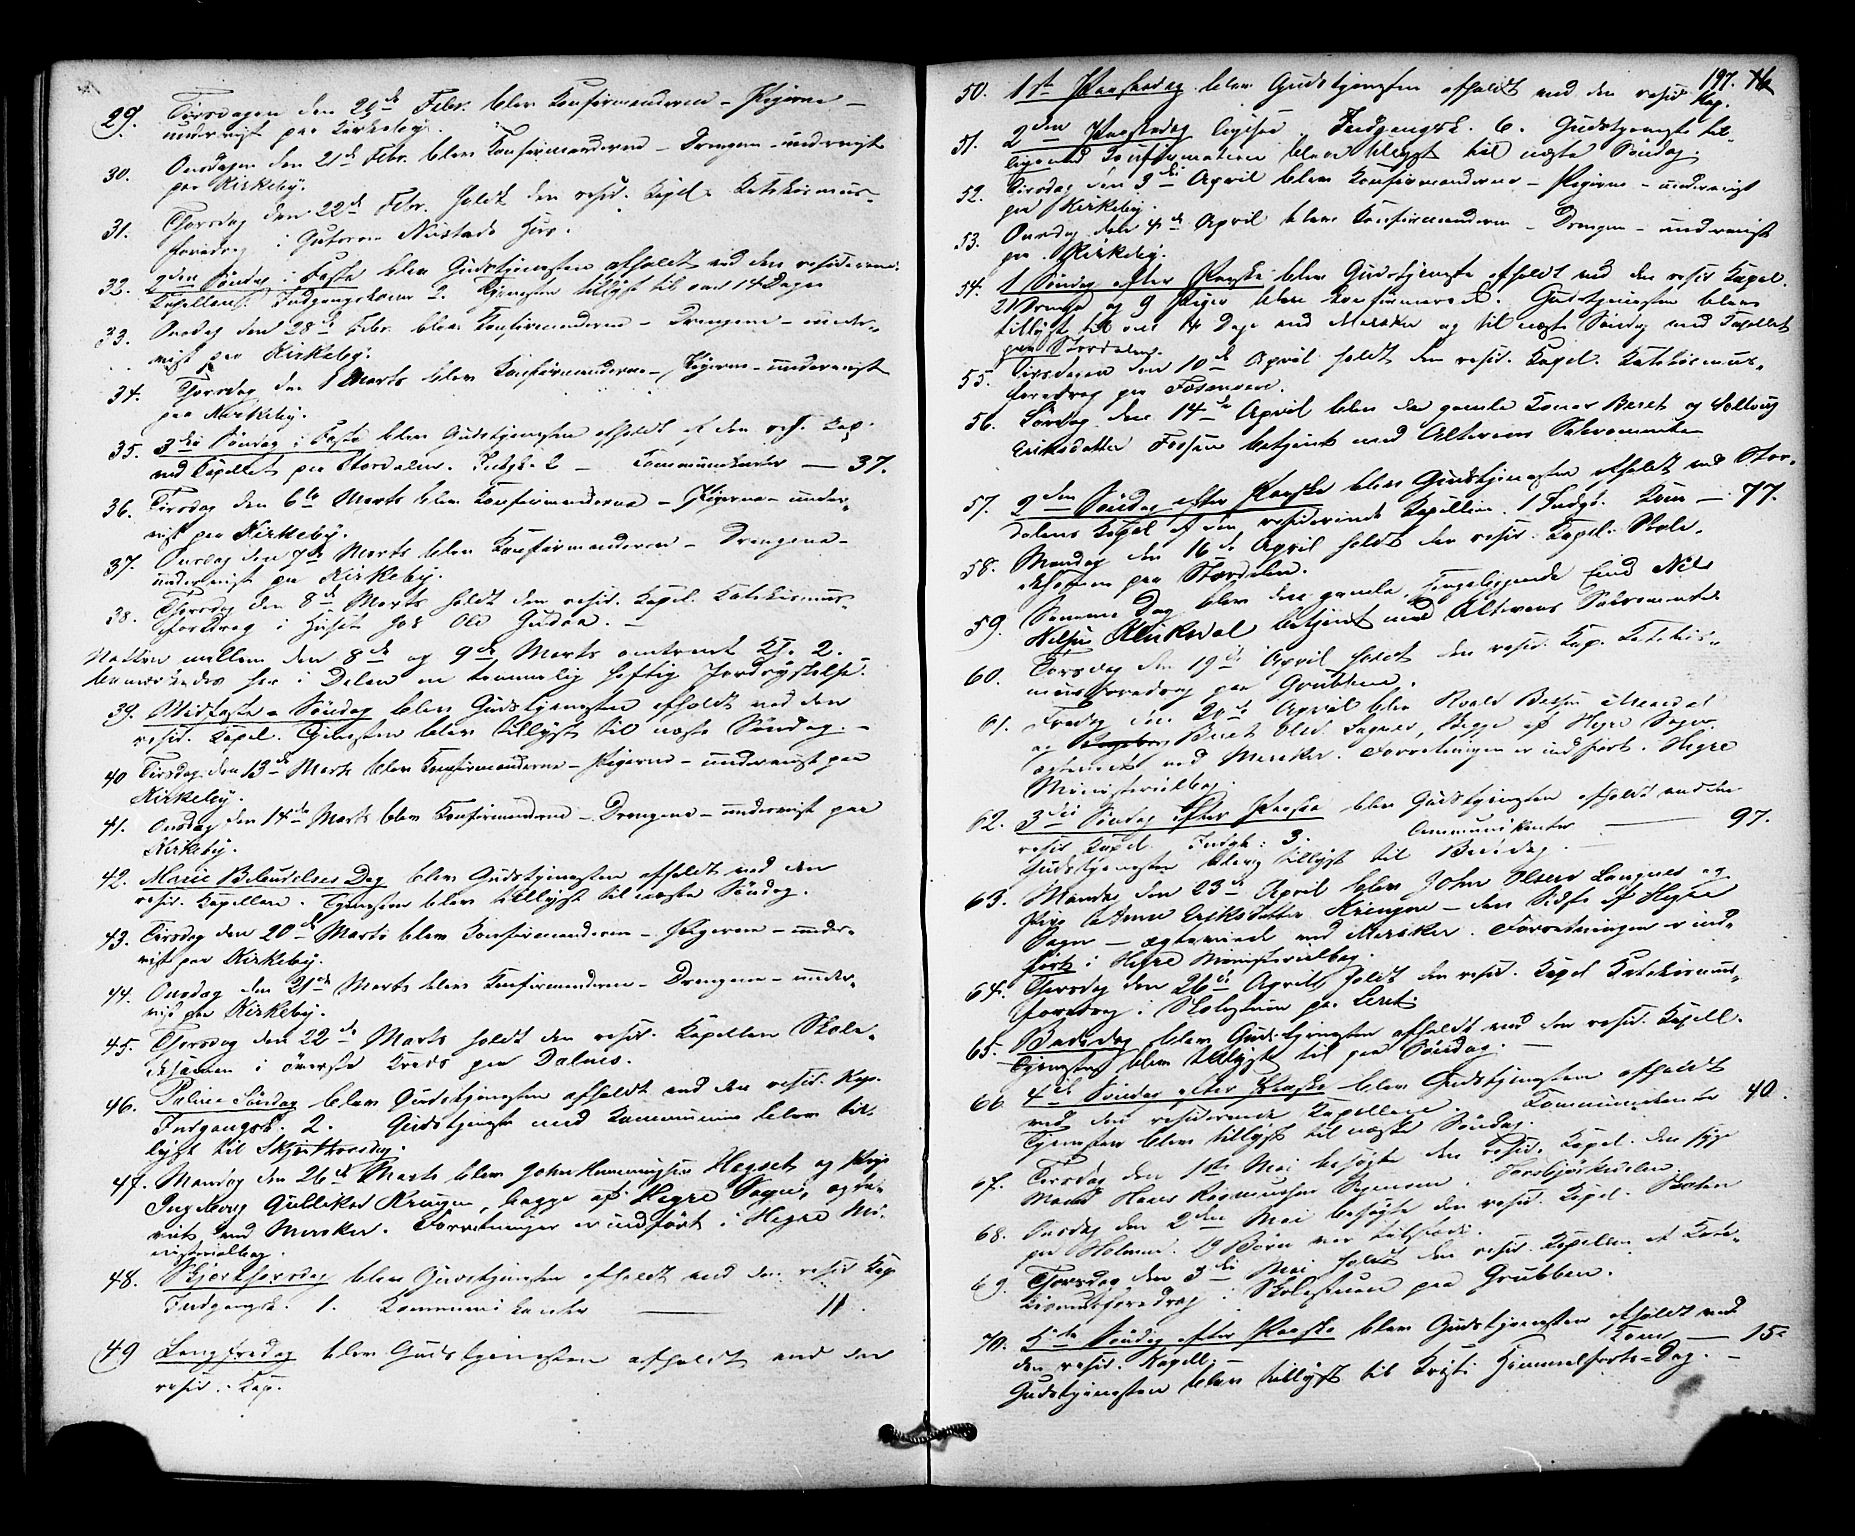 29. Tirsdagen den 20de Febr. blev Konfirmanderne – Pigerne –
undervist paa Kirkeby.
30. Onsdagen den 21de Febr. blev Konfirmanderne – Drengene – undervist
paa Kirkeby.
31. Thorsdag den 22de Febr. holdt den resid. Kapel. Katekismus-
foredrag i Gutorm Nustads Hus.
32. 2den Søndag i Faste blev Gudstjenesten afholdt ved den residerende
Kapellan. Indgangskoner 2. Tjenesten tillyst til om 14 Dage
33. Onsdag den 28de Febr. blev Konfirmanderne – Drengene – under-
vist paa Kirkeby.
34. Thorsdag den 1 Marts blev Konfirmanderne – Pigerne – undervist
paa Kirkeby.
35. 3die Søndag i Faste blev Gudstjenesten afholdt af den res. Kap.
ved Capellet paa Stordalen. Indgk. 2 – Communikanter — 37.
36. Tirsdag den 6te Marts blev Konfirmanderne – Pigerne – under-
vist paa Kirkeby.
37. Onsdag den 7de Marts blev Konfirmanderne – Drengene –
undervist paa Kirkeby.
38. Thorsdag den 8de Marts holdt den resid. Kapel. Katekismus-
foredrag i Huset hos Ole Gudaa. –
Natten mellem den 8de og 9de Marts omtrent Kl. 2.
bemærkedes her i Dalen en temmelig heftig Jordrystelse.
39. Midfaste-Søndag blev Gudstjenesten afholdt ved den
resid. Kapel. Tjenesten blev tillyst til næste Søndag. –
40 Tirsdag den 13de Marts blev Konfirmanderne – Pigerne – undervist paa
Kirkeby.
41. Onsdag den 14de Marts blev Konfirmanderne – Drengene – undervist paa
Kirkeby.
42. Mariæ Bebudelses Dag blev Gudstjenesten afholdt ved den
resid. Kapellan. Tjenesten blev tillyst til næste Søndag.
43. Tirsdag den 20de Marts blev Konfirmanderne – Pigerne – under-
vist paa Kirkeby.
44. Onsdag den 21de Marts blev Konfirmanderne – Drengene – under-
vist paa Kirkeby.
45. Thorsdag den 22de Marts holdt den resid. Kapellan Skole-
eksamen i øverste Kreds paa Dalmo.
46. Palme Søndag blev Gudstjenesten afholdt ved den resid. Kap.
Indgangsk. 2. Gudstjeneste med Kommunion blev til-
lyst til Skjærthorsdag.
47. Mandag den 26de Marts blev John Henningsen Hegset og Pige
Ingeborg Gulliksd. Kringen, begge af Hegre Sogn, ægte-
viet ved Meraker. Forretningen er indført i Hegre Mi-
nisterialbog.
48. Skjærthorsdag blev Gudstjenesten afholdt ved den resid. Kap
Indgangsk. 1. Kommunikanter — 11.
49 Langfredag blev Gudstjenesten afholdt ved den
resid. Kap.
197.
50. 1ste Paaskedag blev Gudstjenesten afholdt ved den resid. Kap.
51. 2den Paaskedag ligesaa. Indgangsk. 6. Gudstjeneste til-
ligemed Konfirmation blev tillyst til næste Søndag.
52. Tirsdag den 3die April blev Konfirmanderne – Pigerne – undervist
paa Kirkeby.
53. Onsdag den 4de April blev Konfirmanderne – Drengene – undervist
paa Kirkeby.
54. 1 Søndag efter Paaske blev Gudstjeneste afholdt ved den resid. Kapel.
21 Drenge og 9 Piger blev konfirmered. Gudstjenesten blev
tillyst til om 14 Dage ved Meraker og til næste Søndag ved Capellet
paa Stordalen.
55. Tirsdagen den 10de April holdt den resid. Kapel. Katekismus-
foredrag paa Fossen.
56. Lørdag den 14de April blev de gamle Koner Beret og Solvug
Eriksdatter Fossen betjent med Alterens Sakramente
57. 2den Søndag efter Paaske blev Gudstjenesten afholdt ved Stor-
dalens Kapel af den residerende Kapellan. 1 Indgk. Kom — 77.
58. Mandag den 16de April holdt den resid. Kapel. Skole-
eksamen paa Stordalen.
59. Samme Dag blev den gamle, sengeliggende Nils
Nilsen betjent med Alterens Sakramente
60. Torsdag den 19de April holdt den resid. Kap. Katekis-
musforedrag paa Grubben.
61. Fredag den 20de April blev
og Beret Olsd. begge af Hegre Sogn
ægteviet ved Meraker. Forretningen er indført i Hegre
Ministerialbog.
62. 3die Søndag efter Paaske blev Gudstjenesten afholdt ved den
resid. Kapel. Indgk: 3. Communikanter — 97.
Gudstjenesten blev tillyst til Bededag. –
63. Mandag den 23de April blev John Olsen Langnes og
Pige Anne Eriksdatter Kringen – den Sidste af Hegre
Sogn – ægteviede ved Meraker. Forretningen er ind-
ført i Hegre Ministerialbog.
64. Thorsdag den 26de April holdt den resid. Kapel Katekismus-
foredrag i Skolestuen paa
65. Bededag blev Gudstjenesten afholdt ved den resid. Kapell.
Tjenesten blev tillyst til paa Søndag.
66 4de Søndag efter Paaske blev Gudstjenesten afholdt
ved den residerende Kapellan. Communikanter 40.
Tjenesten blev tillyst til næste Søndag.
67. Tirsdag den 1ste Mai besøgte den resid. Kapel. den syge
Mand Hans Rasmussen i Torsbjørkdalen.
68. Onsdag den 2den Mai besøgte den resid. Kapel. Skolen
paa Holmen. 19 Børn var tilstede.
69. Thorsdag den 3die Mai holdt den resid. Kapellan et Kate-
kismusforedrag i Skolestuen paa Grubben.
70. 5te Søndag efter Paaske blev Gudstjenesten afholdt ved
den resid. Kapell. – Kom —
Gudstjenesten blev tillyst til Kristi Himmelfarts-Dag. –